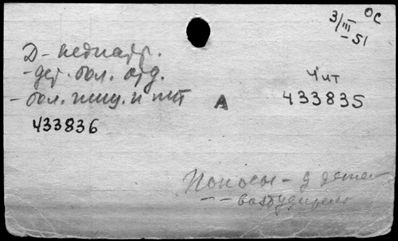 ОС
3/III-51
Д- педиатр.
- дет. бол. отд.
- бол. ... и ...
Чит
А 433835
433836
Поносы - у детей
-- возбудители